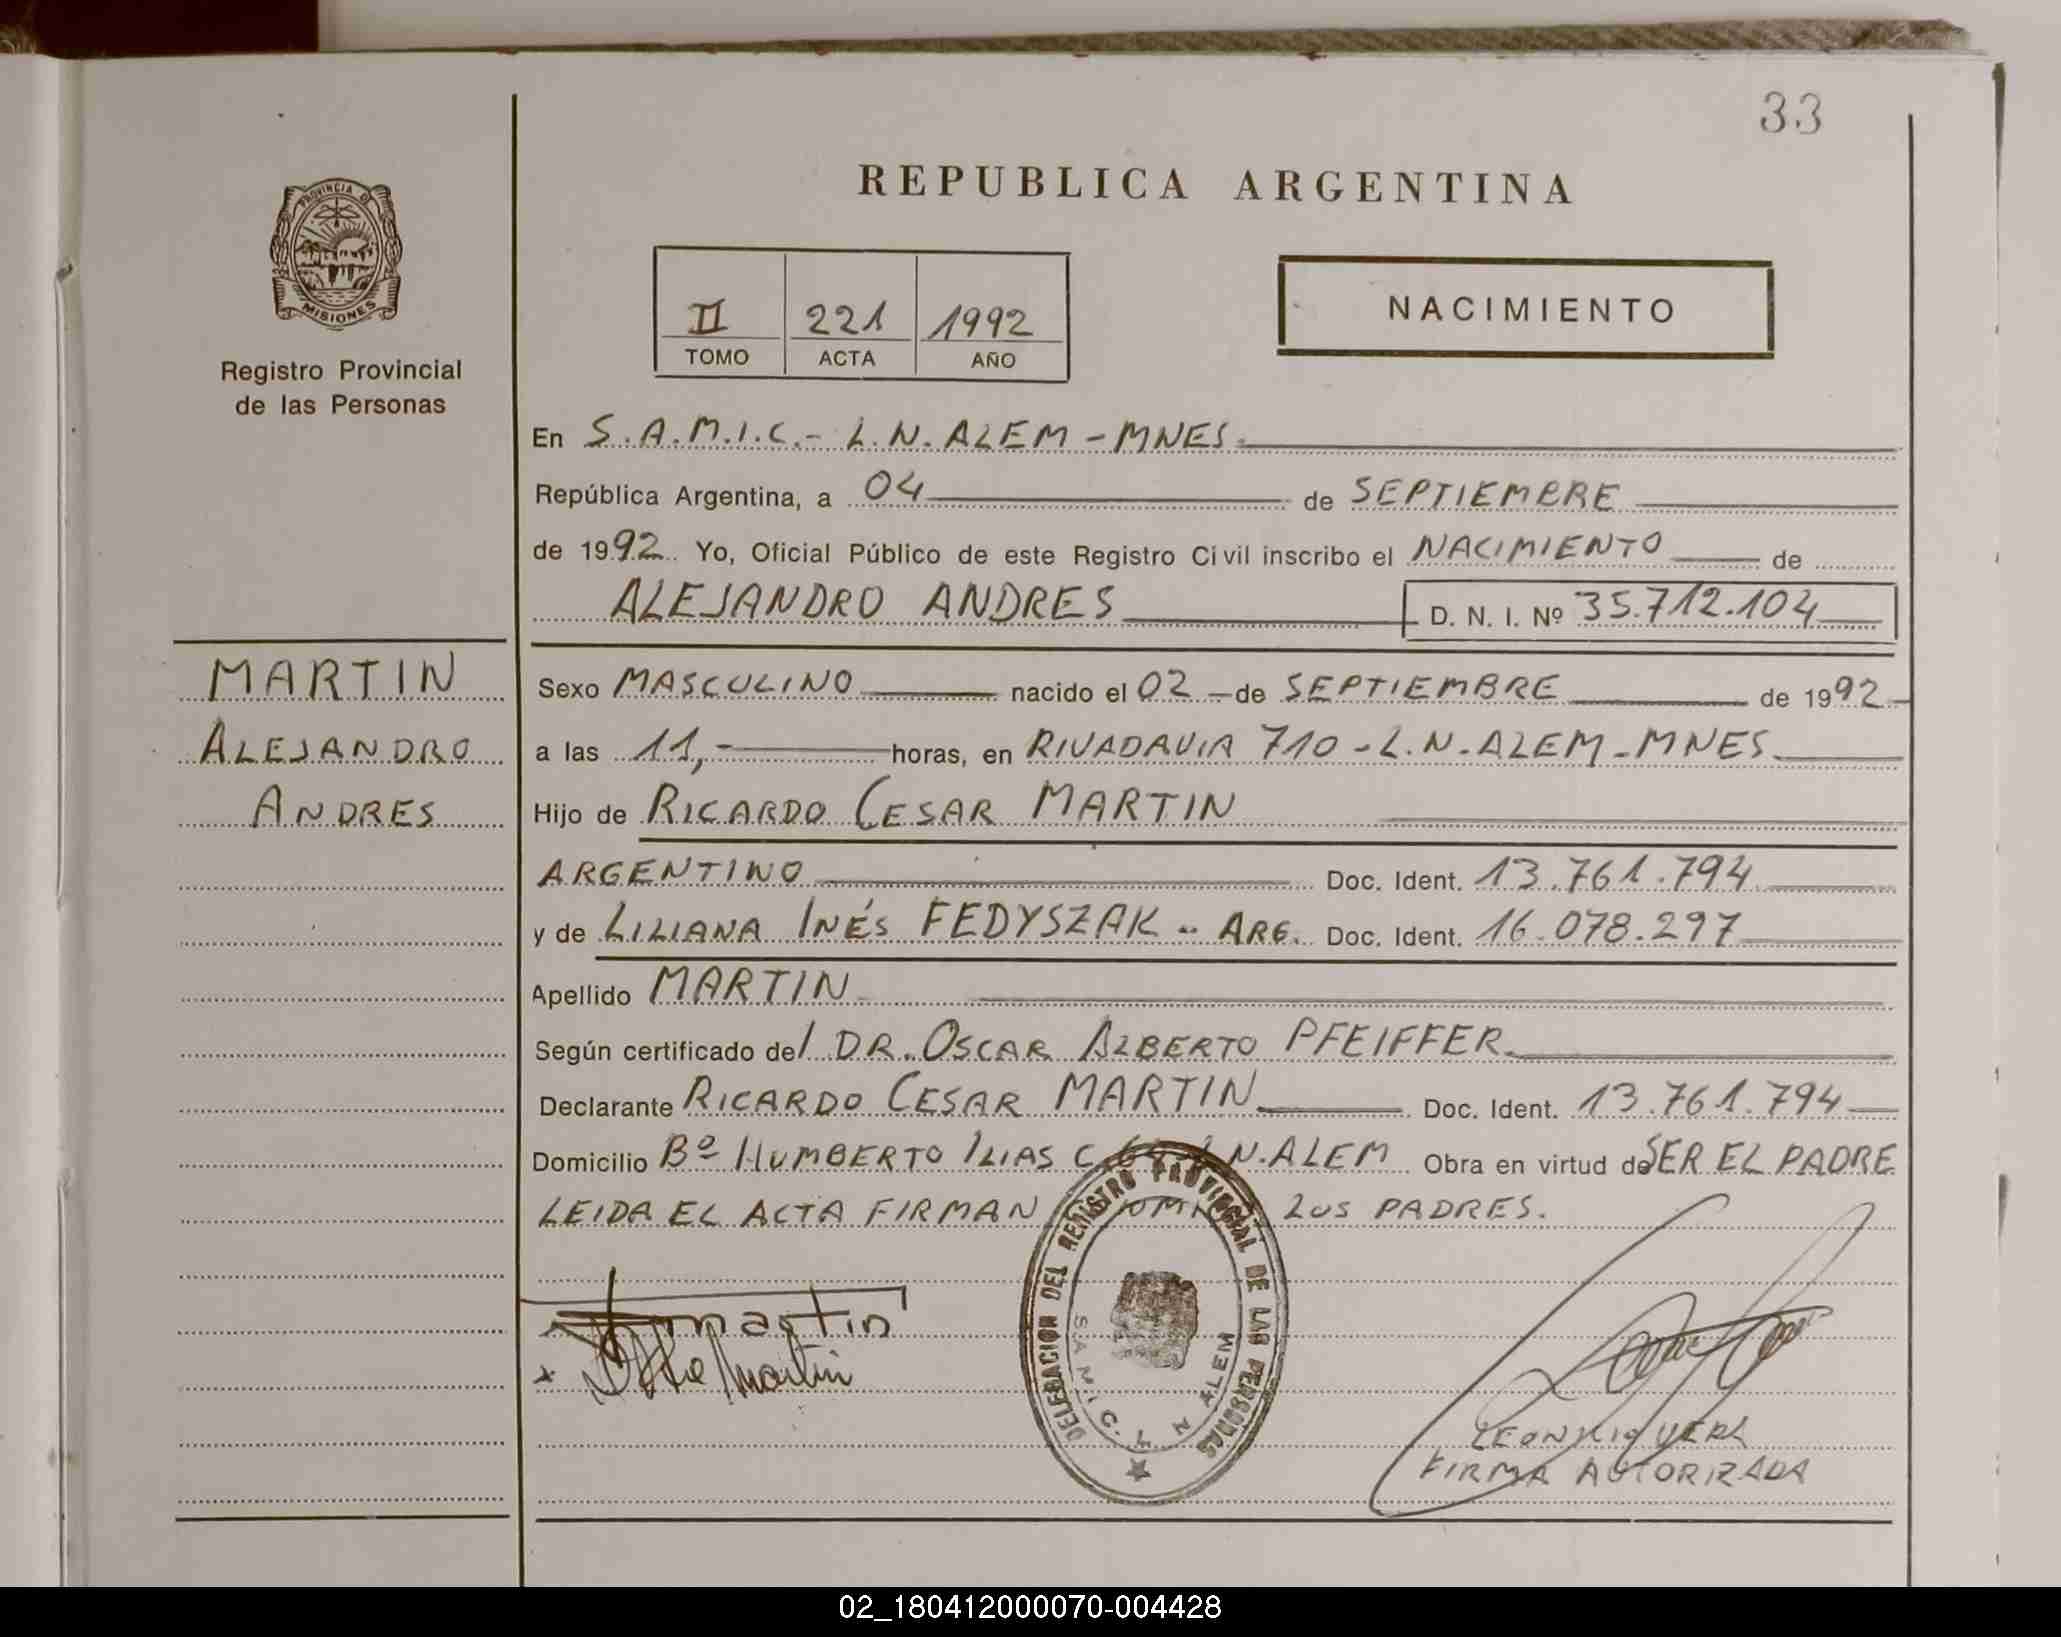 33
REPUBLICA ARGENTINA
PROVINCIA D
MISIONES
Registro Provincial
de las Personas
II 221 1992
TOMO ACTA AÑO
NACIMIENTO
En S.A.M.I.C.- L.N. ALEM - MNES.
República Argentina, a 04 de SEPTIEMBRE
de 1992. Yo, Oficial Público de este Registro Civil inscribo el NACIMIENTO de
ALEJANDRO ANDRES D. N. I. Nº 35.712.104
MARTIN
ALEJANDRO
ANDRES
Sexo MASCULINO nacido el 02 - de SEPTIEMBRE de 1992-
a las 11,- horas, en RIVADAVIA 710 - L.N. ALEM - MNES.
Hijo de RICARDO CESAR MARTIN
ARGENTINO Doc. Ident. 13.761.794
y de LILIANA INÉS FEDYSZAK - ARG. Doc. Ident. 16.078.297
Apellido MARTIN
Según certificado del DR. OSCAR ALBERTO PFEIFFER
Declarante RICARDO CESAR MARTIN Doc. Ident. 13.761.794
Domicilio Bº HUMBERTO ILIAS C. N. ALEM Obra en virtud de SER EL PADRE
LEIDA EL ACTA FIRMAN LOS PADRES.
martin
Martin
DELEGACION DEL REGISTRO PROVINCIAL DE LAS PERSONAS
S.A.M.I.C. L N ALEM
FIRMA AUTORIZADA
02_180412000070-004428